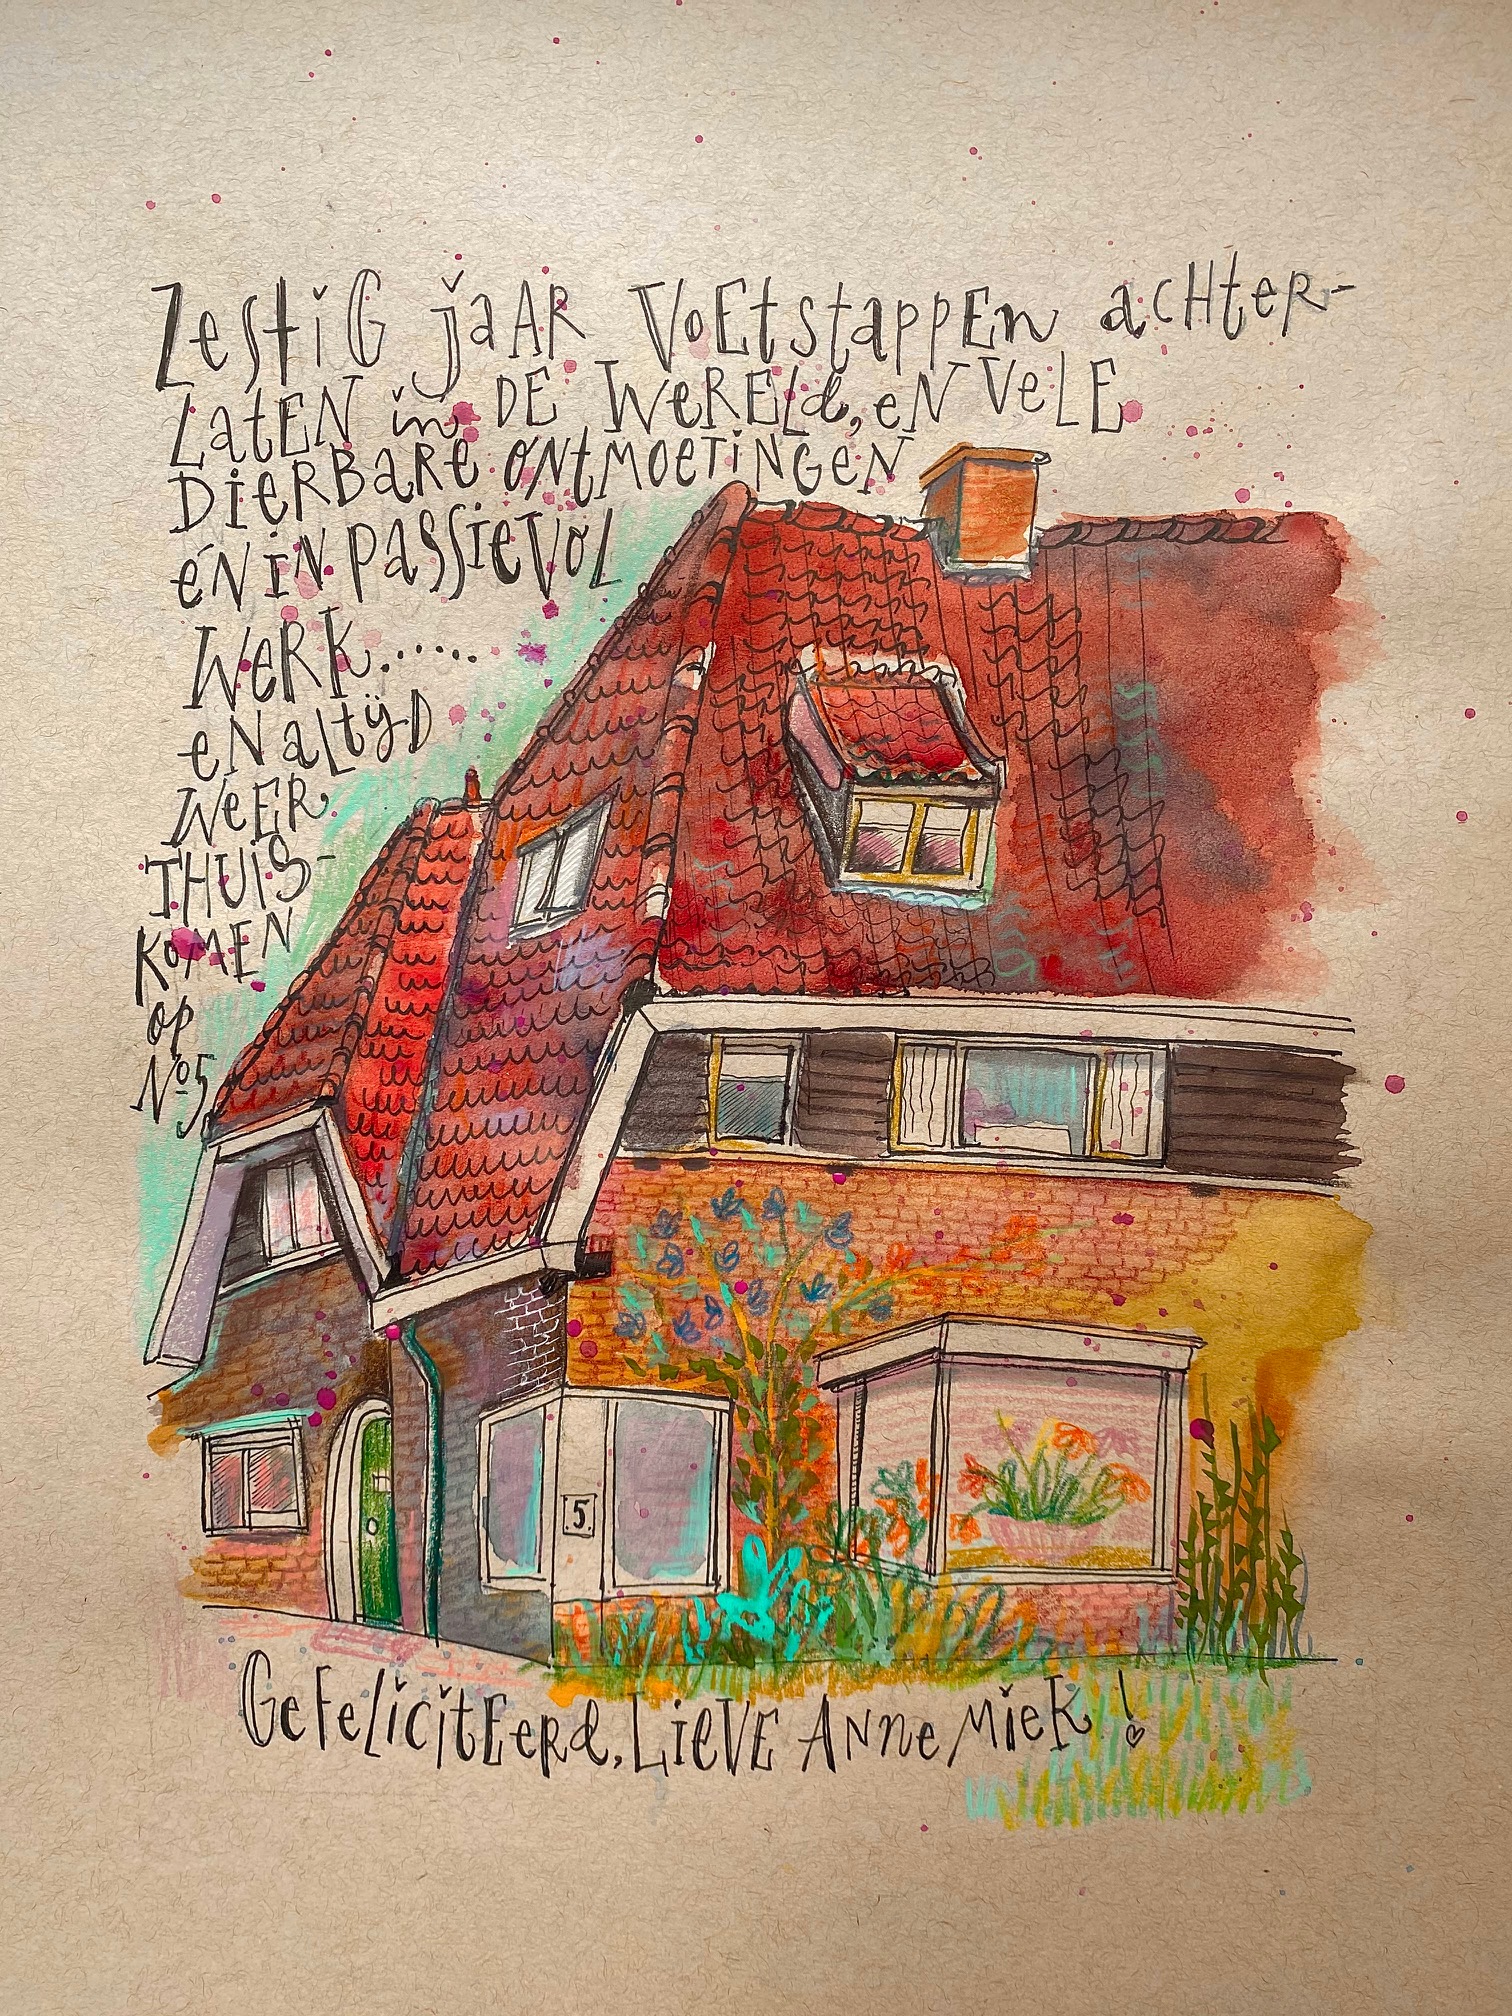 Zestig jaar voetstappen achter-
laten in de wereld, en vele
dierbare ontmoetingen
én in passievol
werk......
en altijd
weer
thuis-
komen
op
No5
5.
Gefeliciteerd, lieve Annemiek!